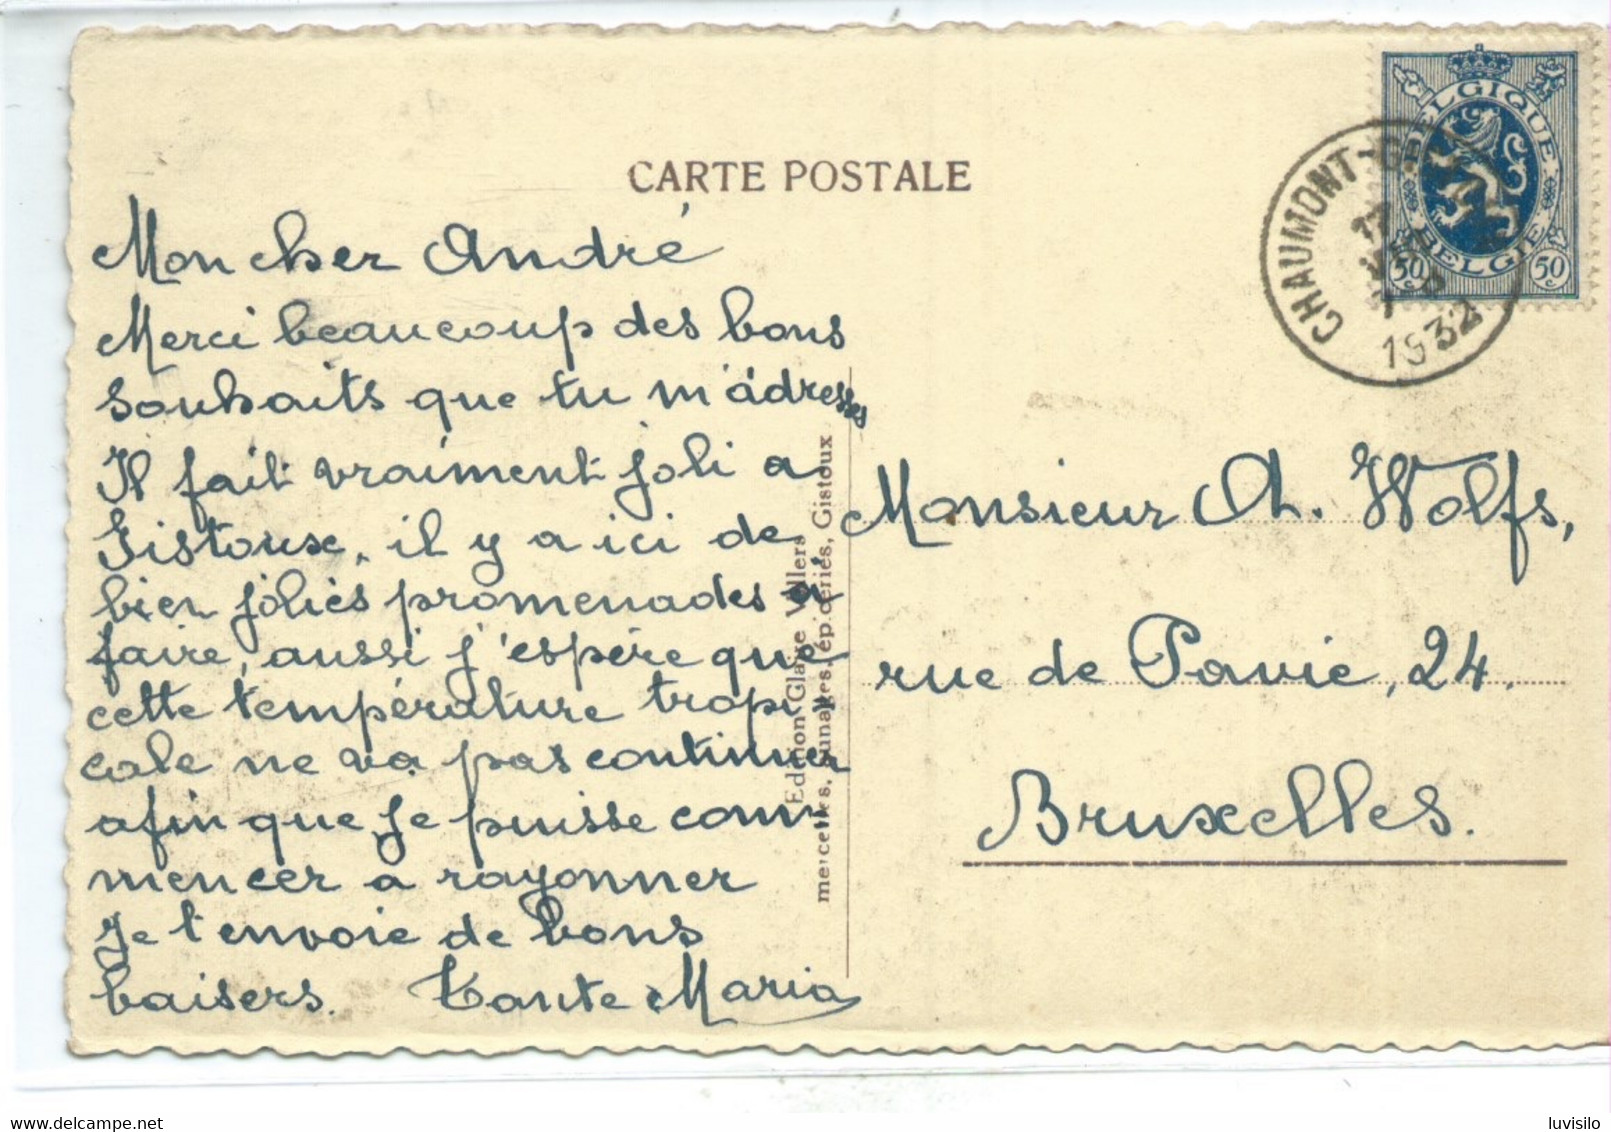 CARTE POSTALE
Mon cher André
Merci beaucoup des bons
souhaits que tu m'adresses
Il fait vraiment joli a
Gistoux, il y a ici de
bien jolies promenades à
faire, aussi j'espère que
cette température tropi-
cale ne va pas continuer
afin que je puisse com-
mencer a rayonner
Je t'envoie de bons
baisers. Tante Maria
Edition Glaire Villers
merceries, aunages, épiceries, Gistoux
Monsieur Ch. Wolfs,
rue de Pavie, 24.
Bruxelles.
BELGIQUE
BELGIE
50 c
50 c
CHAUMONT-G
1932
delcampe.net
luvisilo